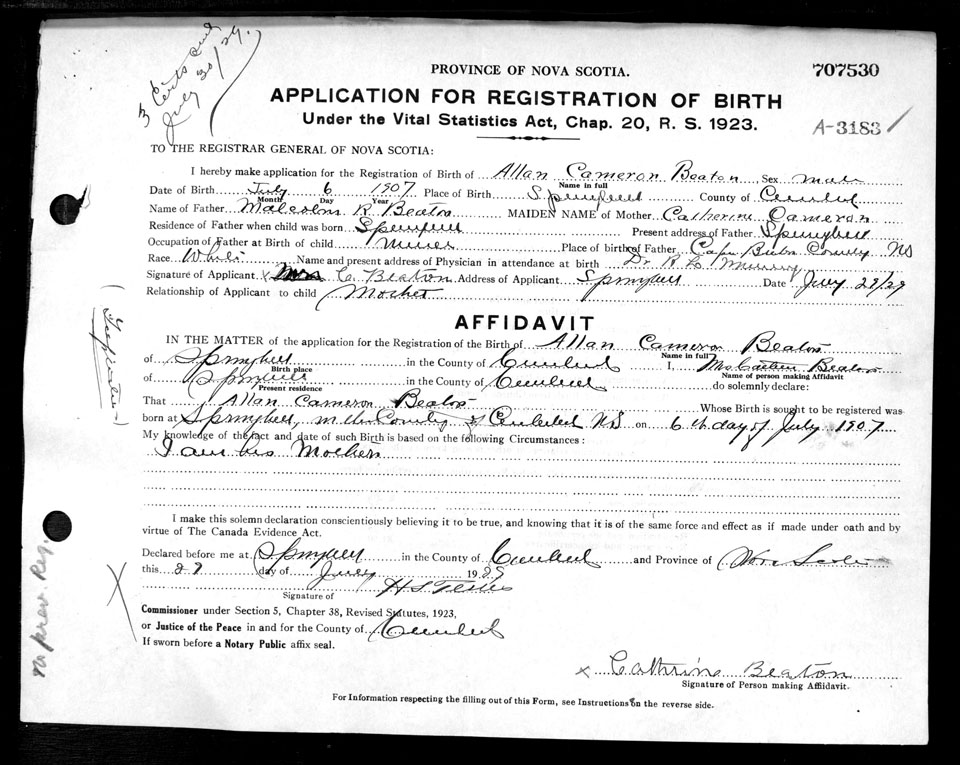 3 Certs sent
July 30/29.
PROVINCE OF NOVA SCOTIA.
707530
APPLICATION FOR REGISTRATION OF BIRTH
Under the Vital Statistics Act, Chap. 20, R. S. 1923.
A-3183
TO THE REGISTRAR GENERAL OF NOVA SCOTIA:
I hereby make application for the Registration of Birth of Allan Cameron Beaton Sex Male
Name in full
Date of Birth July 6 1907 Place of Birth Springhill County of Cumberland
Month Day Year
Name of Father Malcolm R. Beaton MAIDEN NAME of Mother Catherine Cameron
Residence of Father when child was born Springhill Present address of Father Springhill
Occupation of Father at Birth of child Miner Place of birth of Father Cape Breton County NS
Race White Name and present address of Physician in attendance at birth Dr R Murray
Signature of Applicant x Mrs C. Beaton Address of Applicant Springhill Date July 29/29
Relationship of Applicant to child Mother
AFFIDAVIT
IN THE MATTER of the application for the Registration of the Birth of Allan Cameron Beaton
Name in full
of Springhill in the County of Cumberland I, Mrs Beaton
Birth place Name of person making Affidavit
of Springhill in the County of Cumberland do solemnly declare:
Present residence
That Allan Cameron Beaton Whose Birth is sought to be registered was
born at Springhill, in the County of Cumberland NS on 6th day of July 1907
My knowledge of the fact and date of such Birth is based on the following Circumstances:
I am his Mother
I make this solemn declaration conscientiously believing it to be true, and knowing that it is of the same force and effect as if made under oath and by
virtue of The Canada Evidence Act.
Declared before me at Springhill in the County of Cumberland and Province of Nova Scotia
this 29 day of July 1929
Signature of
Commissioner under Section 5, Chapter 38, Revised Statutes, 1923,
or Justice of the Peace in and for the County of Cumberland
If sworn before a Notary Public affix seal.
x Cathrine Beaton
Signature of Person making Affidavit.
For Information respecting the filling out of this Form, see Instructions on the reverse side.
no prev. Reg.